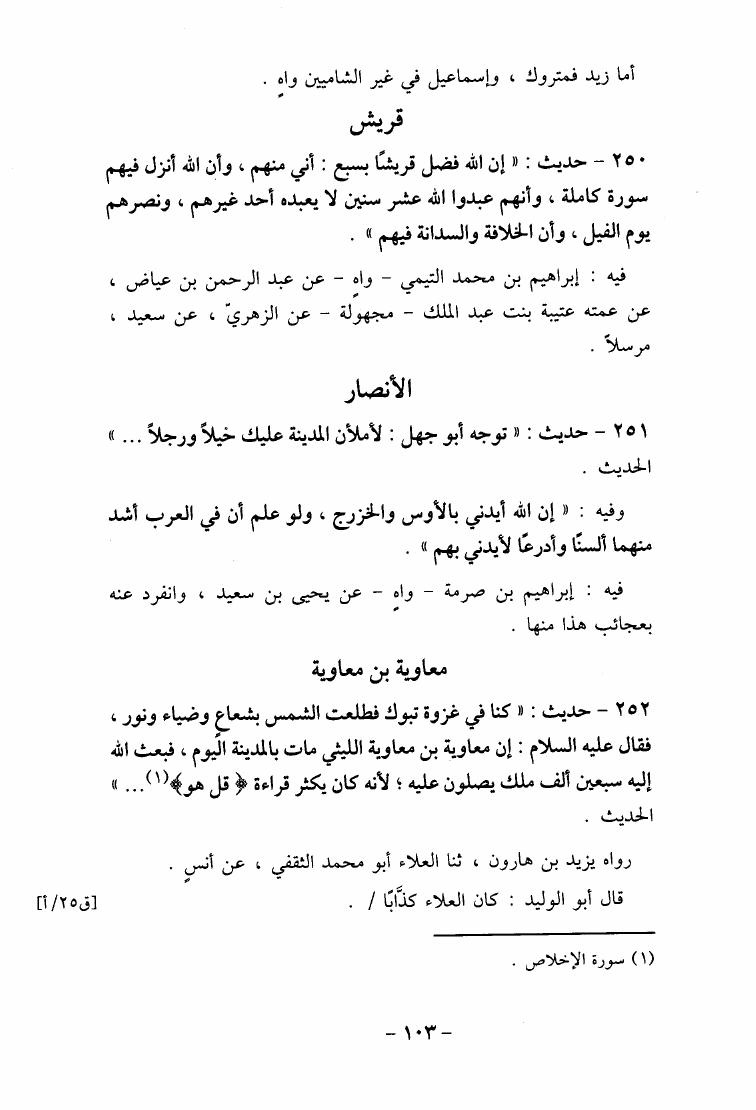 أما زيد فمتروك ، وإسماعيل في غير الشاميين واهٍ .
قريش
٢٥٠ - حديث : « إن الله فضل قريشًا بسبع : أني منهم ، وأن الله أنزل فيهم
سورة كاملة ، وأنهم عبدوا الله عشر سنين لا يعبده أحد غيرهم ، ونصرهم
يوم الفيل ، وأن الخلافة والسدانة فيهم » .
فيه : إبراهيم بن محمد التيمي - واهٍ - عن عبد الرحمن بن عياض ،
عن عمته عتيبة بنت عبد الملك - مجهولة - عن الزهريّ ، عن سعيد ،
مرسلاً .
الأنصار
٢٥١ - حديث : « توجه أبو جهل : لأملأن المدينة عليك خيلاً ورجلاً ... »
الحديث .
وفيه : « إن الله أيدني بالأوس والخزرج ، ولو علم أن في العرب أشد
منهما ألسنًا وأدرعًا لأيدني بهم » .
فيه : إبراهيم بن صرمة - واهٍ - عن يحيى بن سعيد ، وانفرد عنه
بعجائب هذا منها .
معاوية بن معاوية
٢٥٢ - حديث : « كنا في غزوة تبوك فطلعت الشمس بشعاعٍ وضياء ونور ،
فقال عليه السلام : إن معاوية بن معاوية الليثي مات بالمدينة اليوم ، فبعث الله
إليه سبعين ألف ملك يصلون عليه ؛ لأنه كان يكثر قراءة ﴿ قل هو ﴾(١) ... »
الحديث .
رواه يزيد بن هارون ، ثنا العلاء أبو محمد الثقفي ، عن أنسٍ .
قال أبو الوليد : كان العلاء كذَّابًا / . [ق٢٥/أ]
(١) سورة الإخلاص .
- ١٠٣ -